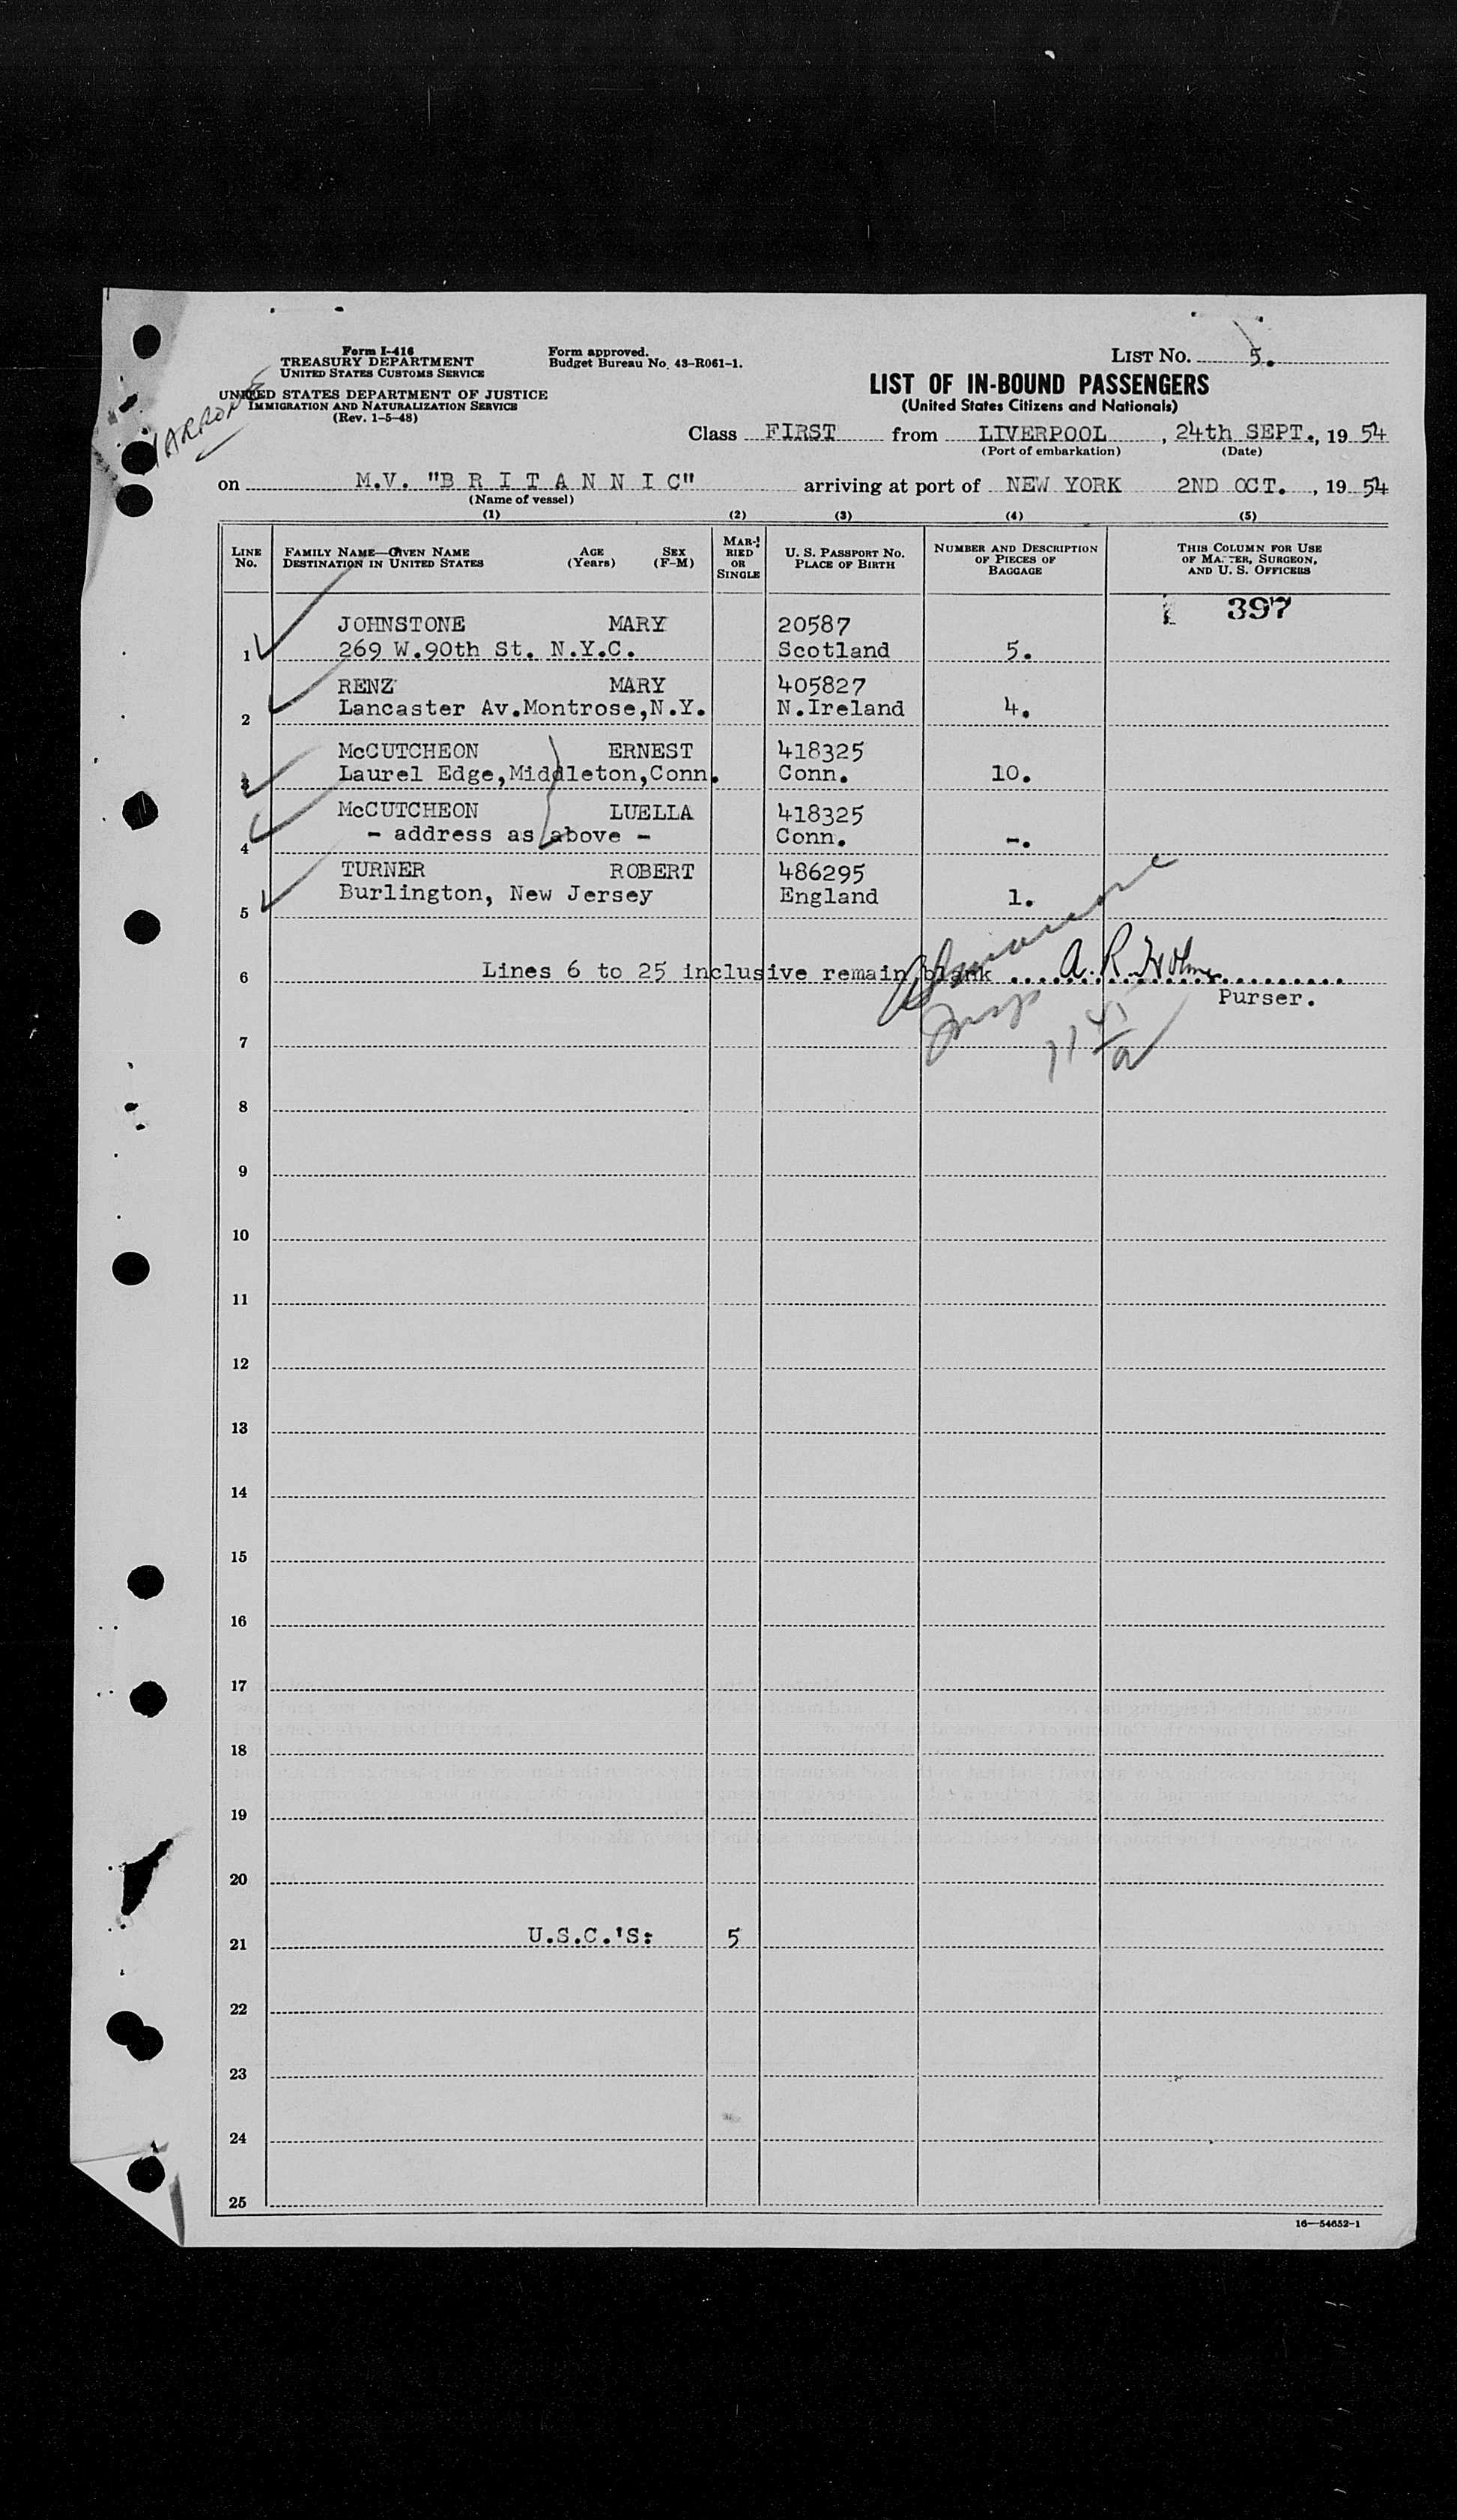 Form I-416
TREASURY DEPARTMENT
UNITED STATES CUSTOMS SERVICE
UNITED STATES DEPARTMENT OF JUSTICE
IMMIGRATION AND NATURALIZATION SERVICE
(Rev. 1-5-48)
Form approved.
Budget Bureau No. 43-R061-1.
LIST No. 5.
LIST OF IN-BOUND PASSENGERS
(United States Citizens and Nationals)
Class FIRST from LIVERPOOL, 24th SEPT., 1954
(Port of embarkation) (Date)
on M.V. "B R I T A N N I C" arriving at port of NEW YORK 2ND OCT., 1954
(Name of vessel)
(1) (2) (3) (4) (5)
LINE No. FAMILY NAME—GIVEN NAME DESTINATION IN UNITED STATES AGE (Years) SEX (F-M) MARRIED OR SINGLE U. S. PASSPORT No. PLACE OF BIRTH NUMBER AND DESCRIPTION OF PIECES OF BAGGAGE THIS COLUMN FOR USE OF MASTER, SURGEON, AND U. S. OFFICERS
397
JOHNSTONE MARY 20587
1 269 W.90th St. N.Y.C. Scotland 5.
RENZ MARY 405827
2 Lancaster Av.Montrose,N.Y. N.Ireland 4.
McCUTCHEON ERNEST 418325
3 Laurel Edge,Middleton,Conn. Conn. 10.
McCUTCHEON LUELLA 418325
4 - address as above - Conn. -.
TURNER ROBERT 486295
5 Burlington, New Jersey England 1.
6 Lines 6 to 25 inclusive remain blank
Purser.
7
8
9
10
11
12
13
14
15
16
17
18
19
20
21 U.S.C.'S: 5
22
23
24
25
16—54652-1